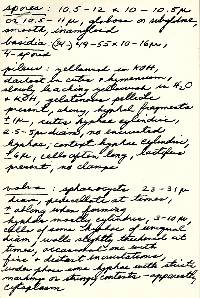 spores: 10.5-12 x 10-10.5µ
or 10.5-11µ, globose or subglobose,
smooth, inamyloid
basidia: (34-) 49-55 x 10-16µ,
4-spored
pileus: yellowed in KOH,
darkest in cutis & hymenium,
slowly leaching yellowed in H2O
& KOH, gelatinous pellicle
present, shiny, hyphal fragments
±1µ, cutis hyphae cylindric,
2.5-5µ diam, no encrusted
hyphae; context hyphae cylindric,
±6µ, cells often long, lactifers
present, no clamps
volva: sphaerocysts 23-31µ
diam, penicillate at times,
& along when forming
hyphae mostly cylindric, 3-10µ,
cells of some hyphae of unequal
diam, walls slightly thickened at
times, occasional one with
fine & distant encrustations,
under phase some hyphae with striate
markings or strongly contents - apparently
cytoplasm